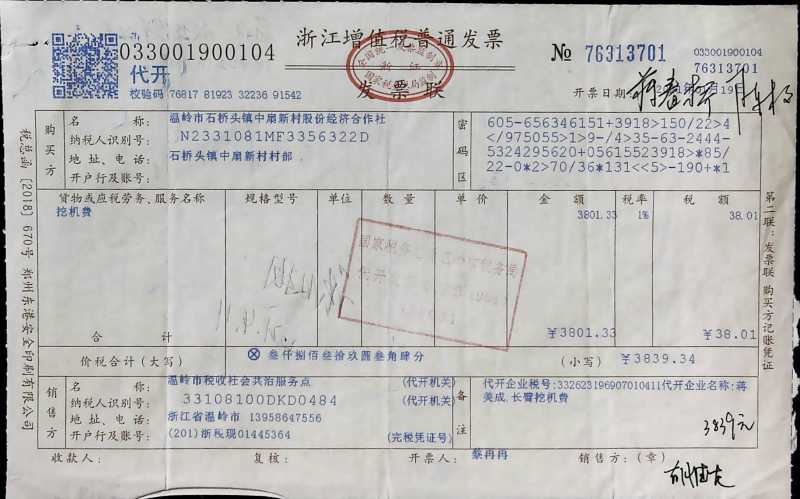 033001900104
浙江增值税普通发票
№ 76313701
033001900104
76313701
代开
发票联
校验码 76817 81923 32236 91542
开票日期
购买方
名称: 温岭市石桥头镇中扇新村股份经济合作社
纳税人识别号: N2331081MF3356322D
地址、电话: 石桥头镇中扇新村村部
开户行及账号:
密码区
605-656346151+3918>150/22>4
</975055>1>9-/4>35-63-2444-
5324295620+05615523918>*85/
22-0*2>70/36*131<<5>-190+*1
货物或应税劳务、服务名称 规格型号 单位 数量 单价 金额 税率 税额
挖机费 3801.33 1% 38.01
合计 ¥3801.33 ¥38.01
价税合计(大写) ⊗ 叁仟捌佰叁拾玖圆叁角肆分 (小写) ¥3839.34
销售方
名称: 温岭市税收社会共治服务点 (代开机关)
纳税人识别号: 33108100DKD0484 (代开机关)
地址、电话: 浙江省温岭市 13958647556
开户行及账号: (201)浙税现01445364 (完税凭证号)
备注
代开企业税号:332623196907010411代开企业名称:蒋
美成.长臂挖机费
3839元
收款人: 复核: 开票人: 蔡冉冉 销售方:(章)
税总函〔2018〕670号 郑州东港安全印刷有限公司
第二联:发票联 购买方记账凭证